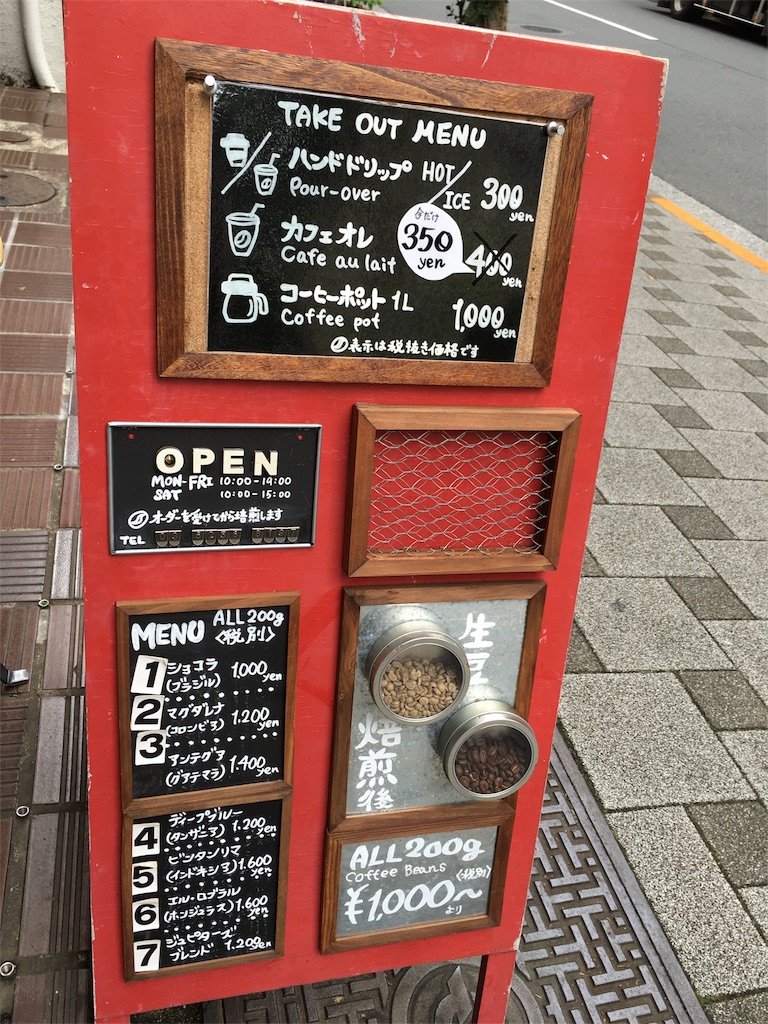 TAKE OUT MENU
ハンドドリップ HOT/ICE 300yen
Pour-over
カフェオレ 今だけ 350yen 400yen
Cafe au lait
コーヒーポット 1L 1,000yen
Coffee pot
表示は税抜き価格です
OPEN
MON-FRI 10:00-19:00
SAT 10:00-15:00
オーダーを受けてから焙煎します
TEL
MENU ALL 200g
<税別>
1 ショコラ 1,000yen
(ブラジル)
2 マグダレナ 1,200yen
(コロンビア)
3 アンテグア 1,400yen
(グアテマラ)
4 ディープブルー 1,200yen
(タンザニア)
5 ビンタンリマ 1,600yen
(インドネシア)
6 エル・ロブラル 1,600yen
(ホンジュラス)
7 ジュピターズ 1,200yen
ブレンド
生豆
焙煎後
ALL 200g
Coffee Beans <税別>
¥1,000~
より